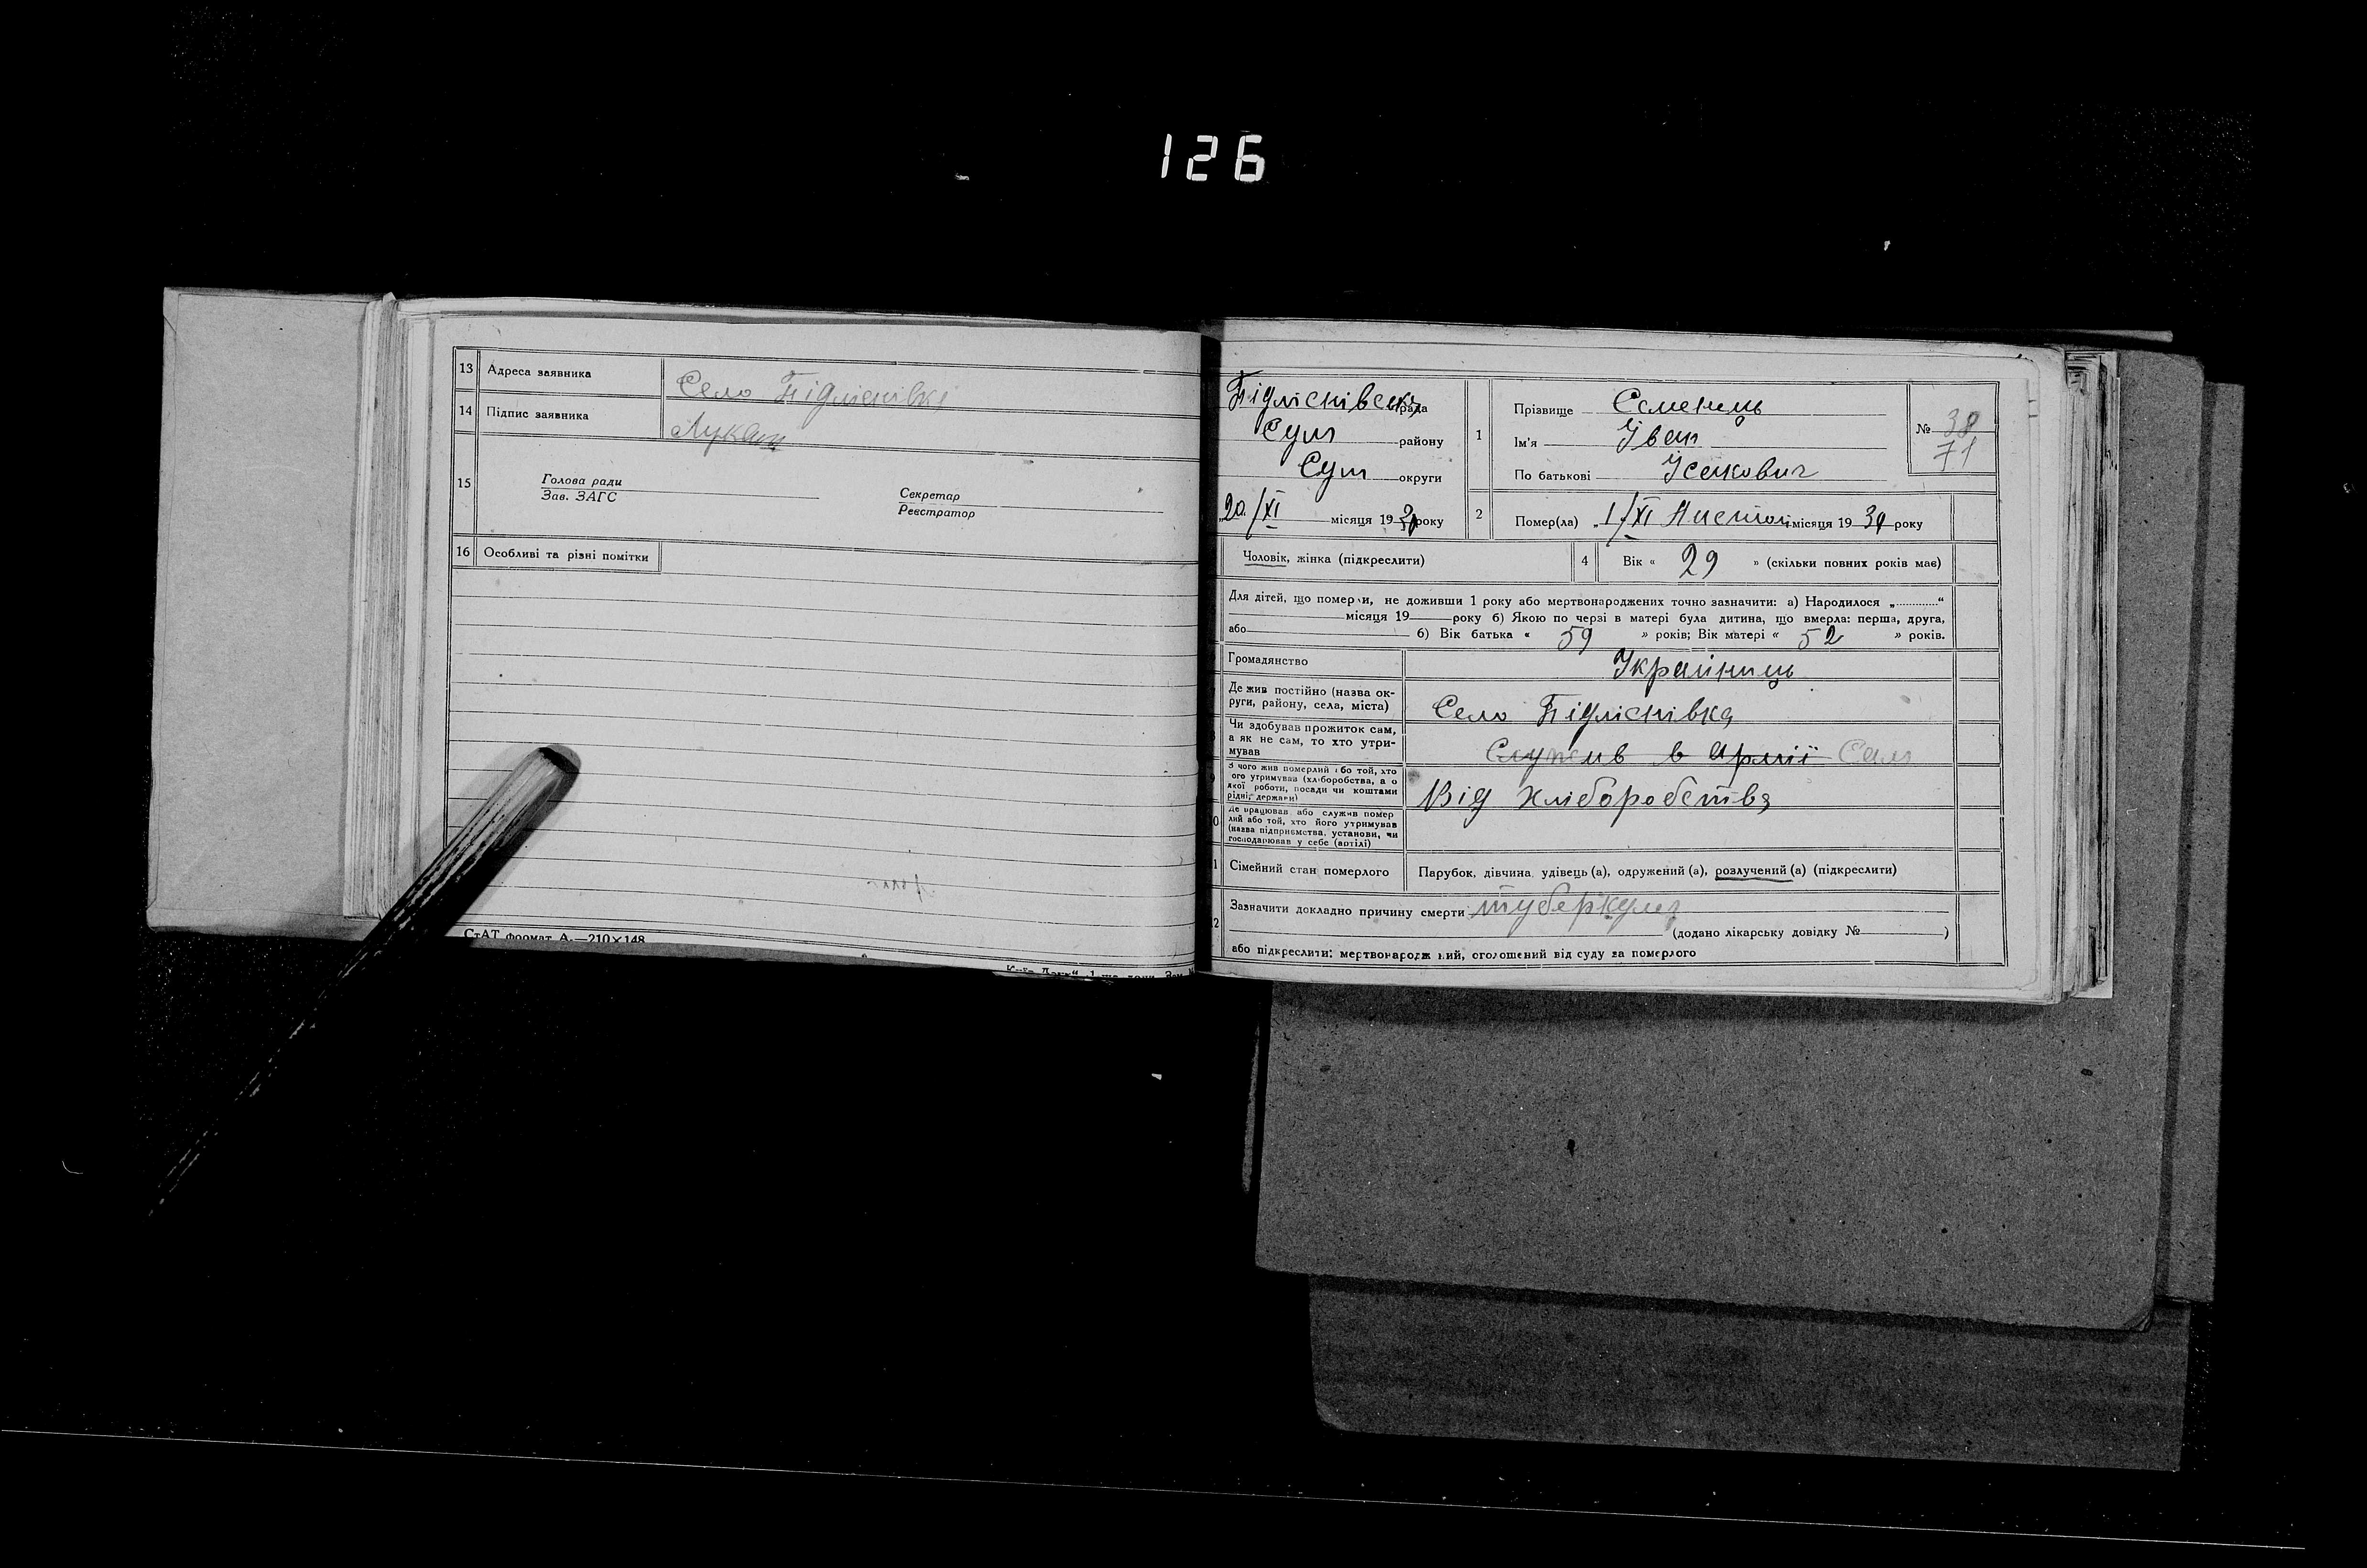 126
13 Адреса заявника Село Підліснівка
14 Підпис заявника Лукаш
15 Голова ради
Зав. ЗАГС
Секретар
Реєстратор
16 Особливі та різні помітки
СтАТ формат А₅—210×148
Підліснівська рада
Сум району
Сум округи
„20/XI місяця 1931 року
1 Прізвище Семенець
Ім'я Іван
По батькові Ісакович
№ 38
71
2 Помер(ла) „1/XI Листоп місяця 1931 року
Чоловік, жінка (підкреслити)
4 Вік « 29 » (скільки повних років має)
Для дітей, що померли, не доживши 1 року або мертвонароджених точно зазначити: а) Народилося „............“
місяця 19 року б) Якою по черзі в матері була дитина, що вмерла: перша, друга,
або б) Вік батька « 59 » років; Вік матері « 52 » років.
Громадянство Україниць
Де жив постійно (назва ок-
руги, району, села, міста) Село Підліснівка
Чи здобував прожиток сам,
а як не сам, то хто утри-
мував Служив в армії Сам
З чого жив померлий або той, хто
його утримував (хліборобства, з
якої роботи, посади чи коштами
рідні, держави) Від хліборобства
Де працював або служив помер
лий або той, хто його утримував
(назва підприємства, установи, чи
господарював у себе (артілі)
Сімейний стан померлого Парубок, дівчина, удівець (а), одружений (а), розлучений (а) (підкреслити)
Зазначити докладно причину смерти туберкульоз
(додано лікарську довідку № )
або підкреслити: мертвонароджений, оголошений від суду за померлого